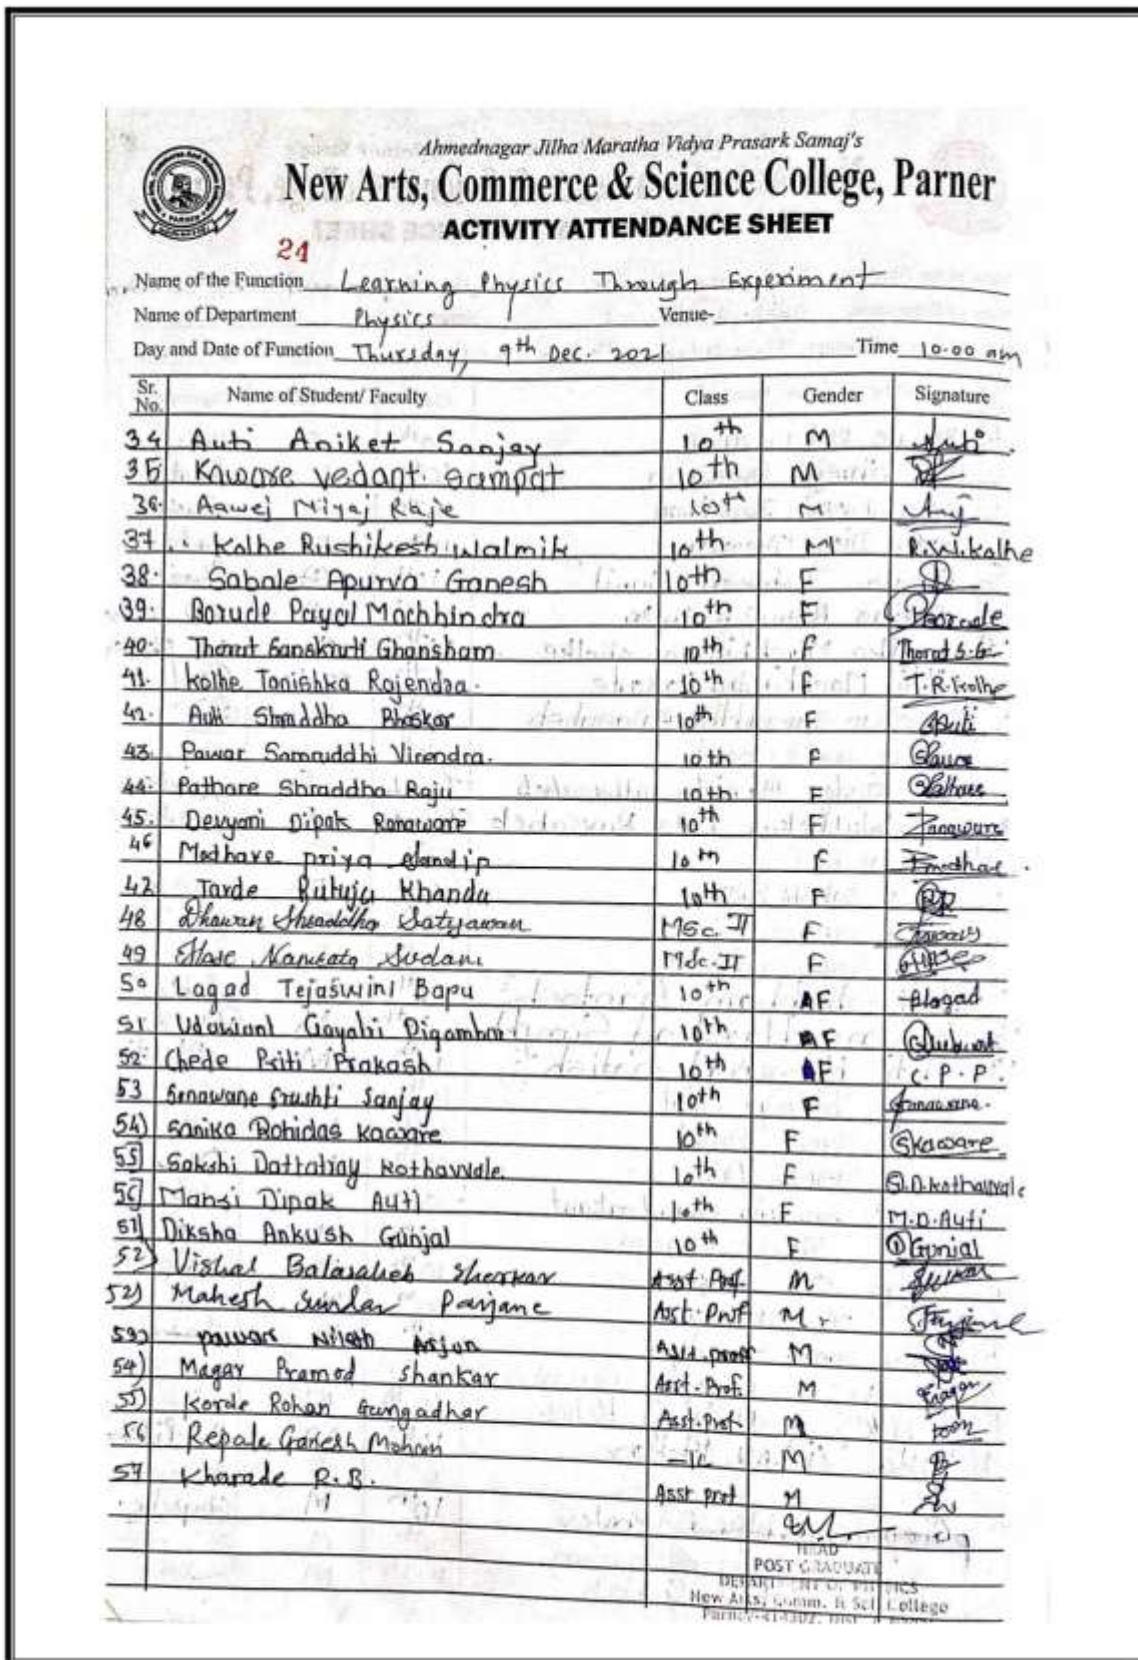 Ahmednagar Jilha Maratha Vidya Prasark Samaj's
New Arts, Commerce & Science College, Parner
ACTIVITY ATTENDANCE SHEET
24
Name of the Function Learning Physics Through Experiment
Name of Department Physics Venue-
Day and Date of Function Thursday, 9th Dec. 2021 Time 10.00 am
Sr. No. Name of Student/ Faculty Class Gender Signature
34 Auti Aniket Sanjay 10th M Auti
35 Kaware vedant sampat 10th M
36. Aawej Niyaj Raje 10th M
37. Kolhe Rushikesh Walmik 10th M R.W.Kolhe
38. Sabale Apurva Ganesh 10th F
39. Borude Payal Machhindra 10th F Borude
40. Thorat Sanskruti Ghansham 10th F Thorat S.G.
41. Kolhe Tanishka Rajendra. 10th F T.R.Kolhe
42. Auti Shraddha Bhaskar 10th F Auti
43. Pawar Samruddhi Virendra. 10th F
44. Pathare Shraddha Raju 10th F
45. Devyani Dipak Ranaware 10th F Ranaware
46 Madhave priya Sandip 10th F
47 Tarde Rutuja Khandu 10th F
48 Dhawan Shraddha Satyawan MSc. II F
49 Hase Namrata Sudam MSc-II F
50 Lagad Tejaswini Bapu 10th F Lagad
51 Gayatri Digambar 10th F
52. Chede Priti Prakash 10th F C.P.P.
53 Sonawane Srushti Sanjay 10th F Sonawane.
54) Sanika Rohidas Kaware 10th F SKaware
55) Sakshi Dattatray Kothawale. 10th F S.D.Kothawale
56) Mansi Dipak Auti 10th F M.D.Auti
51) Diksha Ankush Gunjal 10th F D Gunjal
52) Vishal Balasaheb Sherkar Asst. Prof. M
52) Mahesh Sundar Panjane Asst. Prof M.
53) pawar Nilesh Arjun Asst. proff M
54) Magar Pramod Shankar Asst. Prof. M Magar
55) Korde Rohan Gangadhar Asst. Prof. M
56 Repale Ganesh Mohan -11- M
57 Kharade R.B. Asst prof M
HEAD
POST GRADUATE
DEPARTMENT OF PHYSICS
New Arts, Comm. & Sci. College